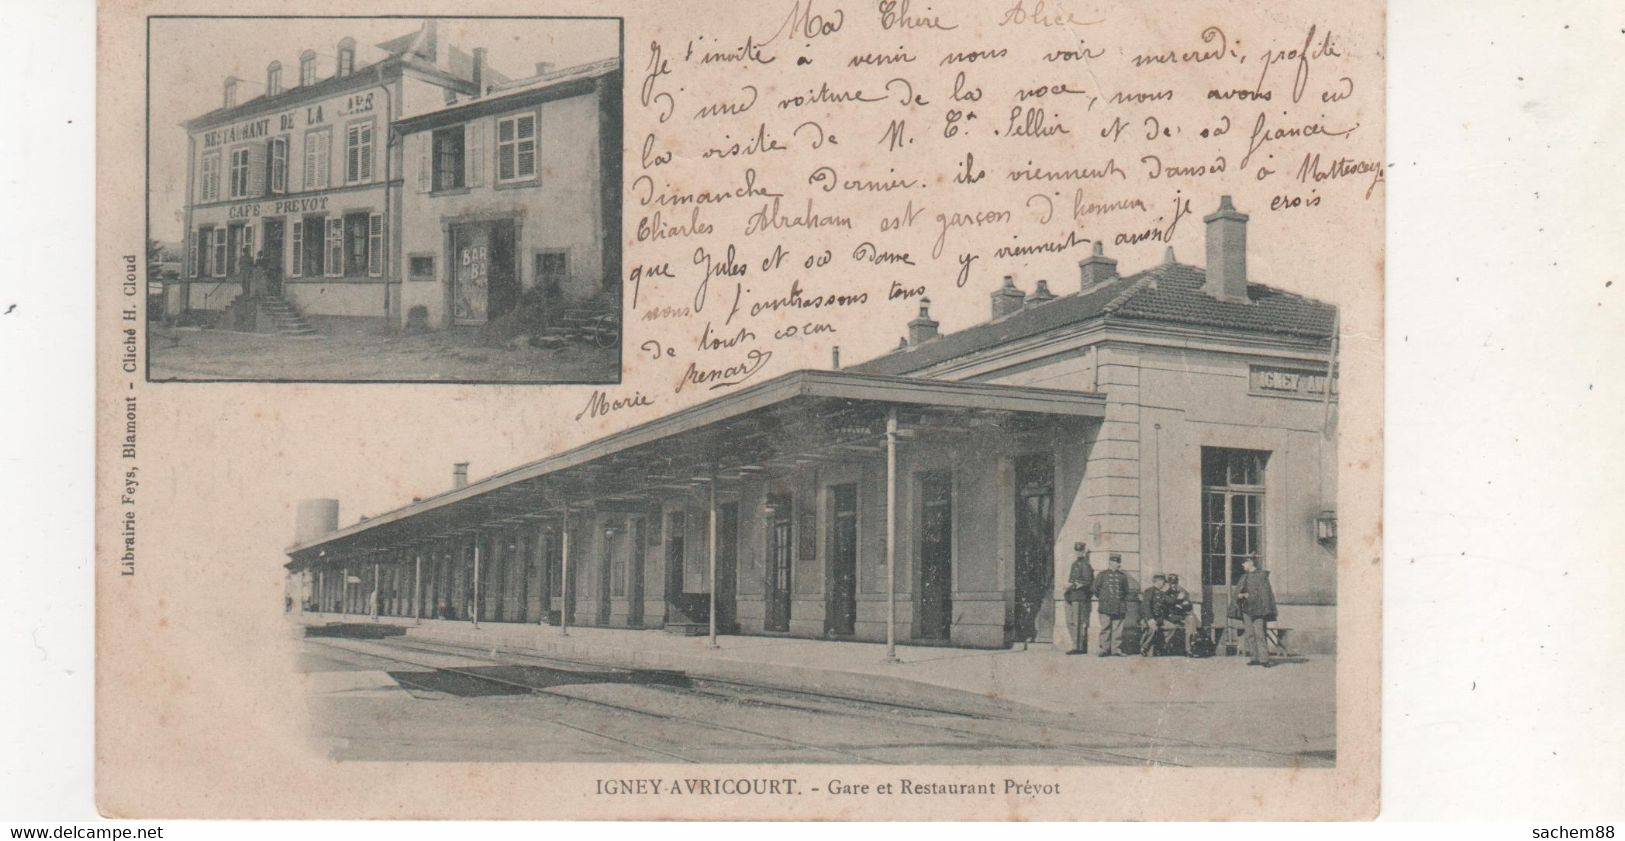 Ma Chère Alice
Je t'invite à venir nous voir mercredi, profite
d'une voiture de la noce, nous avons eu
la visite de M. Sellier et de sa fiancée,
Dimanche Dernier. ils viennent Danser à
Charles Abraham est garçon d'honneur je crois
que Jules et sa Dame y viennent aussi
nous t'embrassons tous
de tout cœur
Marie Renard
RESTAURANT DE LA GARE
CAFÉ PREVOT
BAR
BA
IGNEY-AV
Librairie Feys, Blamont - Cliché H. Cloud
IGNEY-AVRICOURT. - Gare et Restaurant Prévot
www.delcampe.net
sachem88